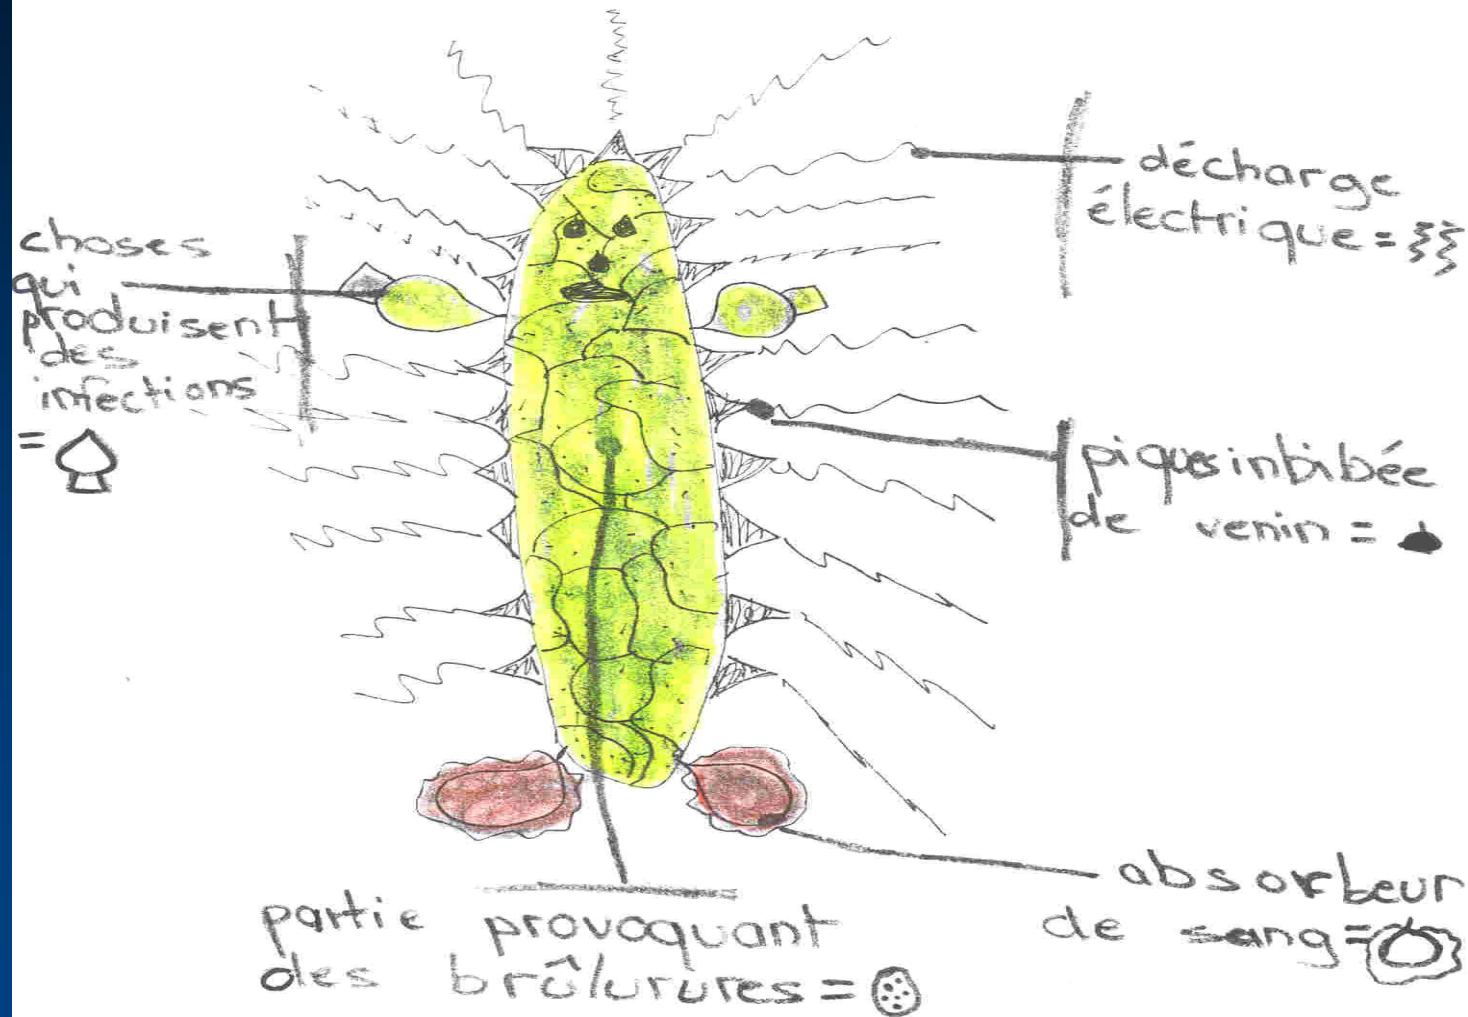 décharge
électrique =
choses
qui
produisent
des
infections
=
piques inbibée
de venin =
absorbeur
de sang =
partie provoquant
des brûlurures =